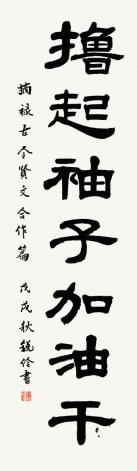 撸起袖子加油干
摘襐古今贤文合作篇 戊戌秋锐伶书